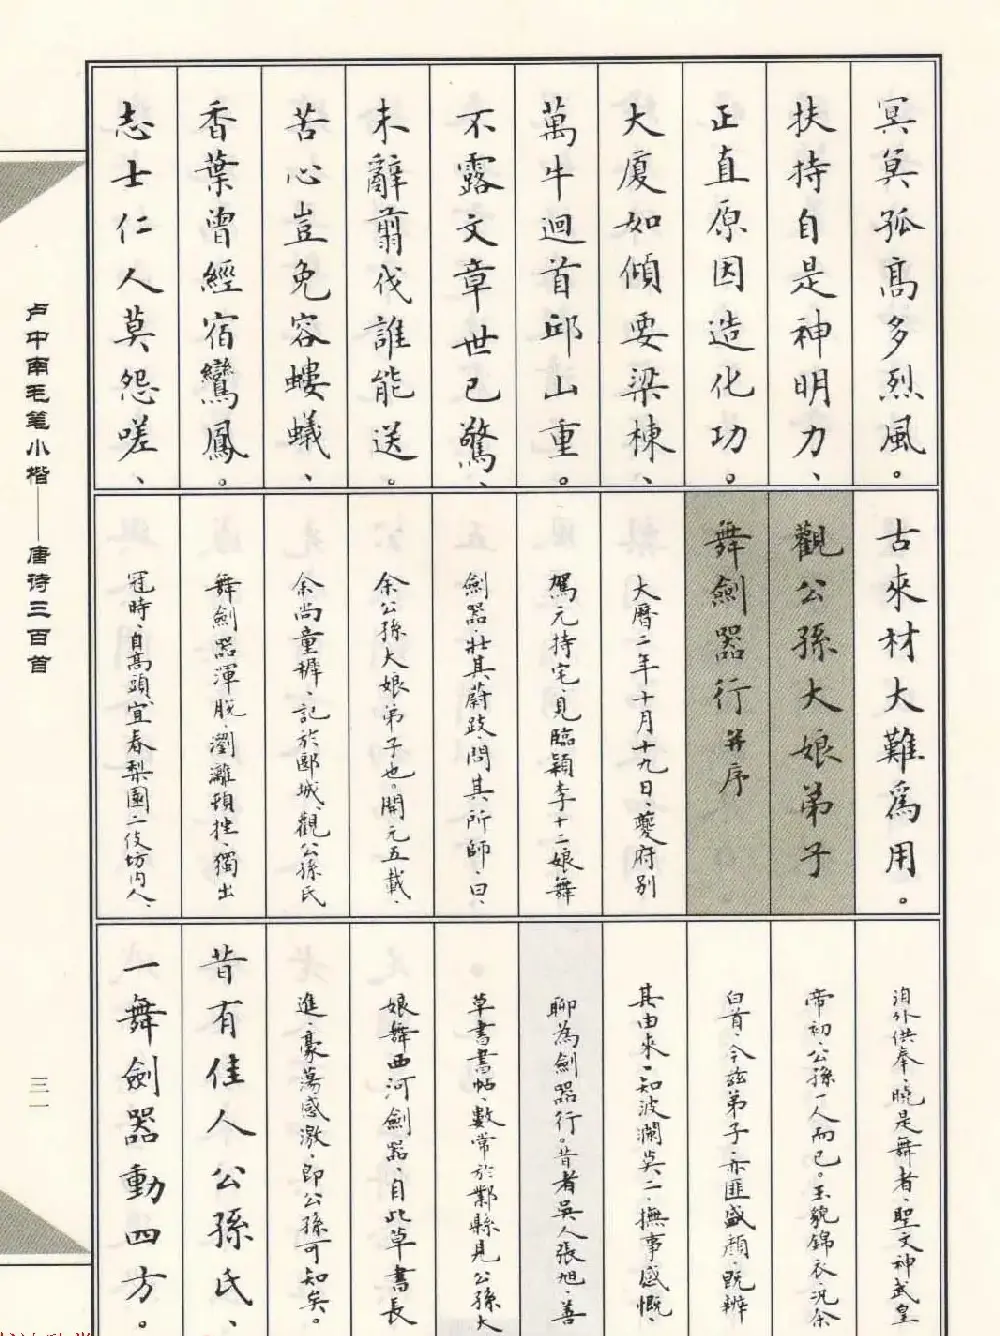 冥冥孤高多烈風。
扶持自是神明力、
正直原因造化功。
大廈如傾要梁棟、
萬牛迴首邱山重。
不露文章世已驚、
未辭翦伐誰能送。
苦心豈免容螻蟻、
香葉曾經宿鸞鳳。
志士仁人莫怨嗟、
古來材大難為用。
觀公孫大娘弟子
舞劍器行并序
大曆二年十月十九日、夔府別
駕元持宅、見臨潁李十二娘舞
劍器、壯其蔚跂、問其所師、曰、
余公孫大娘弟子也。開元五載、
余尚童穉、記於郾城、觀公孫氏
舞劍器渾脫、瀏灕頓挫、獨出
冠時、自高頭、宜春梨園二伎坊內人、
洎外供奉、曉是舞者、聖文神武皇
帝初、公孫一人而已。玉貌錦衣、況余
白首、今茲弟子、亦匪盛顏、既辨
其由來、知波瀾莫二、撫事感慨、
聊為劍器行。昔者吳人張旭、善
草書書帖、數常於鄴縣見公孫大
娘舞西河劍器、自此草書長
進、豪蕩感激、即公孫可知矣。
昔有佳人公孫氏、
一舞劍器動四方。
卢中南毛笔小楷——唐诗三百首
三一